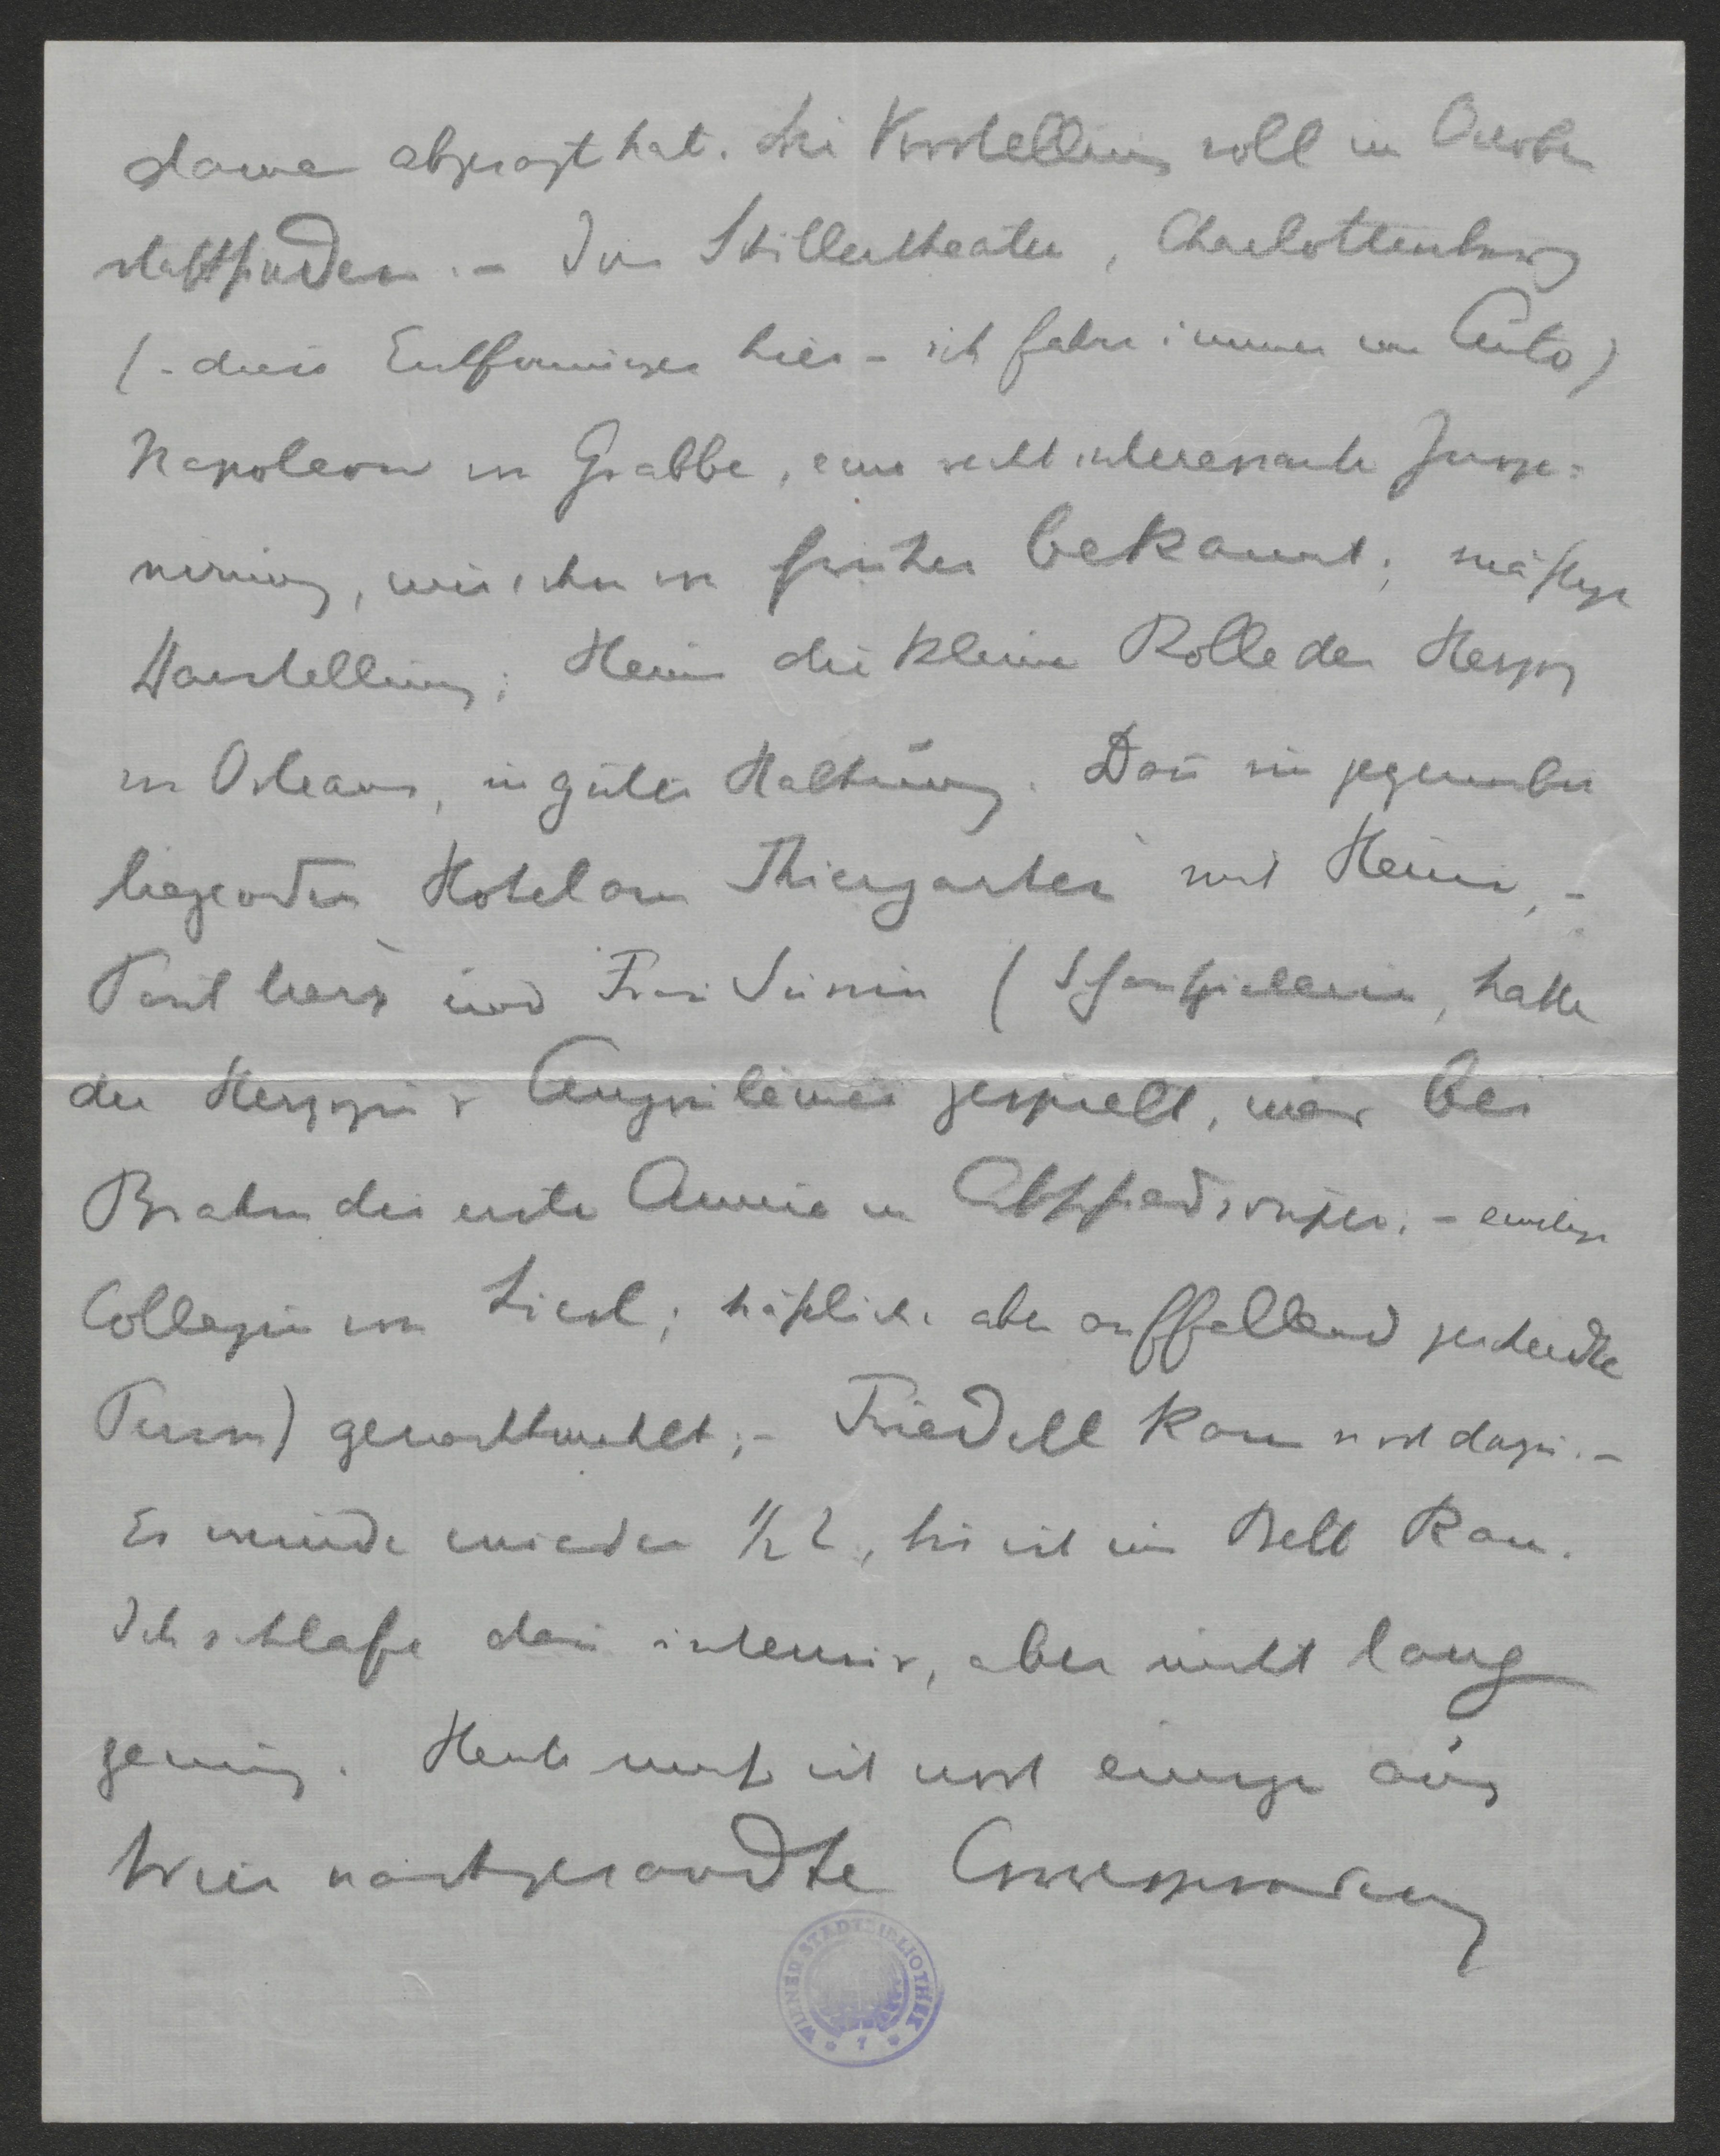 dowa abgesagt hat. Die Vorstellung soll im October
stattfinden.– Im Schillertheater, Charlottenburg
(– diese Entfernungen hier – ich fahre immer im Auto)
Napoleon von Grabbe, eine recht interessante Insze-
nirung, wie schon von früher bekannt; mäßige
Darstellung; Heini die kleine Rolle des Herzog
von Orleans, in guter Haltung. Dann im gegenüber
liegenden Hotel am Thiergarten mit Heini, –
und Frau (Schauspielerin, hatte
die Herzogin v Angoulême gespielt, war bei
Brahm die erste Annie im Abschiedssouper; – einstige
Collegin von Liesl; häßliche aber auffallend gescheidte
Person) genachtmahlt; – Friedell kam noch dazu.–
Es wurde wieder ½ 2, bis ich ins Bett kam.
Ich schlafe dann intensiv, aber nicht lang
genug. Heute muß ich noch einige aus
Wien nachgesandte Correspondenz
WIENER STADTBIBLIOTHEK